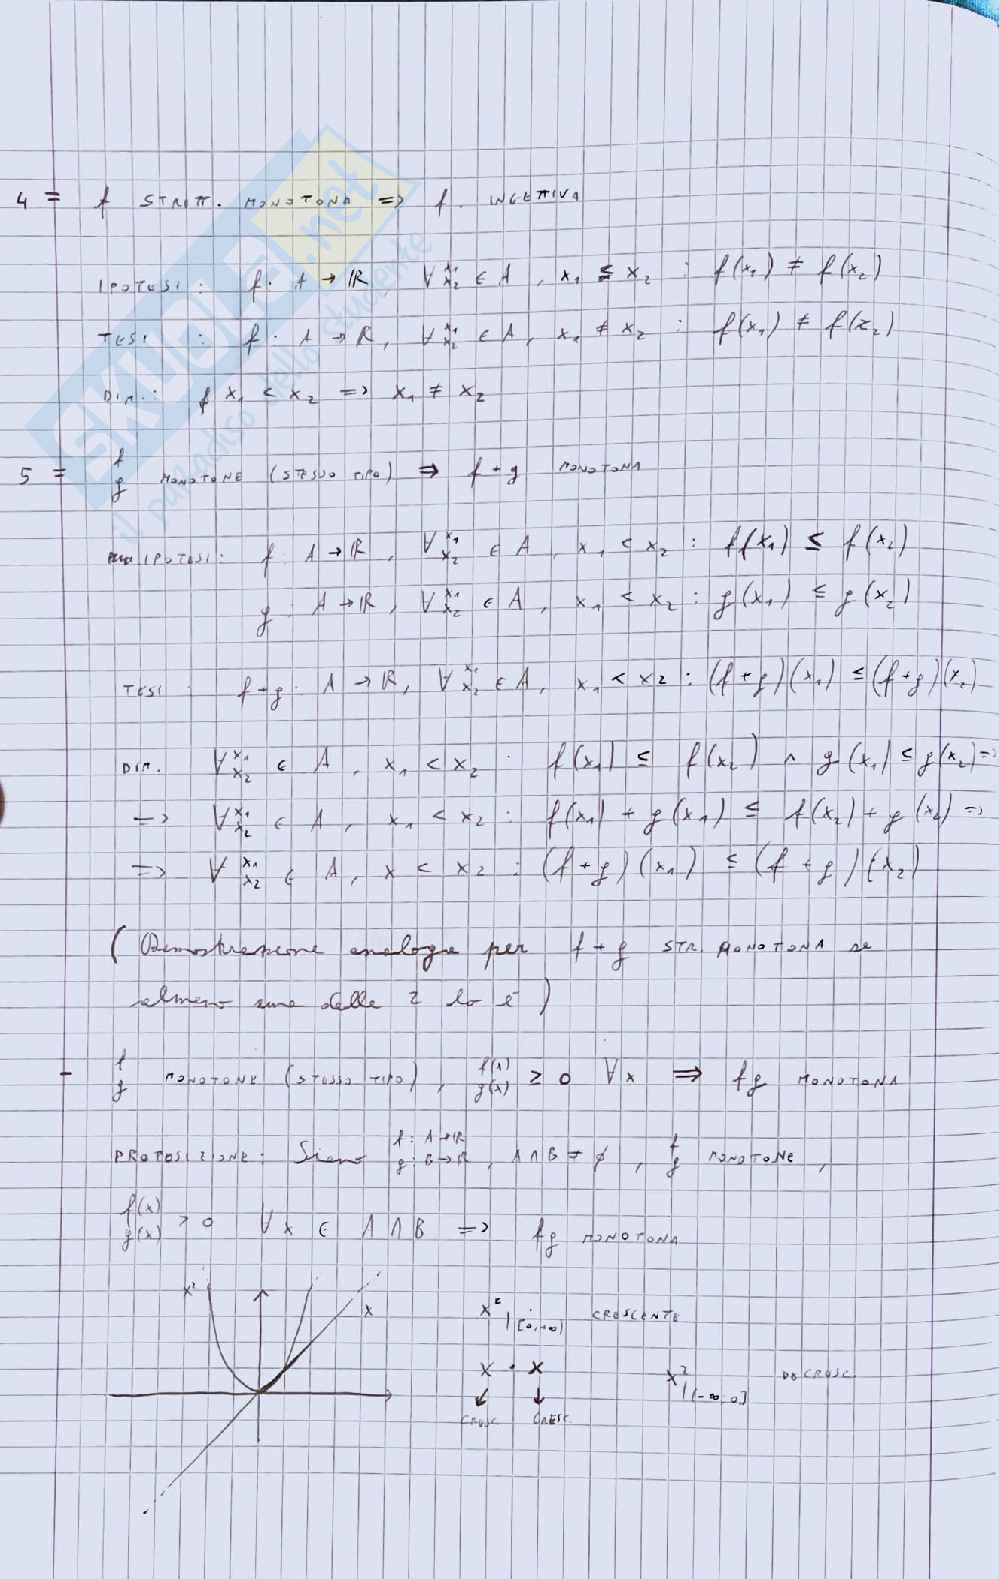 4 = f STRETT. MONOTONA => f. INGETTIVA
IPOTESI : f. A → ℝ ∀ x₁ x₂ ∈ A , x₁ ≤ x₂ : f(x₁) ≠ f(x₂)
TESI : f : A → ℝ, ∀ x₁ x₂ ∈ A, x₁ ≠ x₂ : f(x₁) ≠ f(x₂)
DIM.: f x₁ < x₂ => x₁ ≠ x₂
5 = f g MONOTONE (STESSO TIPO) => f+g MONOTONA
IPOTESI: f. A → ℝ, ∀ x₁ x₂ ∈ A, x₁ < x₂ : ff(x₁) ≤ f(x₂)
g. A → ℝ, ∀ x₁ x₂ ∈ A, x₁ < x₂ : g(x₁) ≤ g(x₂)
TESI : f+g. A → ℝ, ∀ x₁ x₂ ∈ A, x₁ < x₂ : (f+g)(x₁) ≤ (f+g)(x₂)
DIM. ∀ x₁ x₂ ∈ A, x₁ < x₂ : f(x₁) ≤ f(x₂) ∧ g(x₁) ≤ g(x₂) =>
=> ∀ x₁ x₂ ∈ A, x₁ < x₂ : f(x₁) + g(x₁) ≤ f(x₂) + g(x₂) =>
=> ∀ x₁ x₂ ∈ A, x < x₂ : (f+g)(x₁) ≤ (f+g)(x₂)
(Dimostrazione analoga per f+g STR. MONOTONA se
almeno una delle 2 lo è)
- f g MONOTONE (STESSO TIPO), f(x) g(x) ≥ 0 ∀x => fg MONOTONA
PROPOSIZIONE: Siano f: A→ℝ g: B→ℝ, A∩B ≠ ∅, f g MONOTONE,
f(x) g(x) > 0 ∀x ∈ A∩B => fg MONOTONA
x² x
x² |[0,+∞) CRESCENTE
x · x x² |(-∞,0] DECRESC.
↓ ↓
CRESC CRESC.
SKUOLA.net
il paradiso dello studente